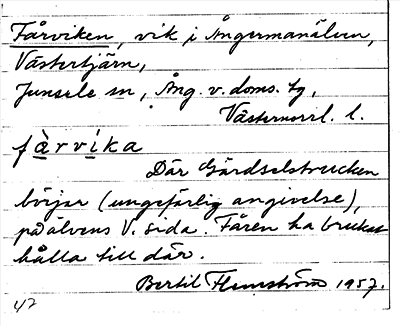 Fårviken, vik i Ångermanälven,
Västertjärn,
Junsele sn, Ång. v. doms. tg,
Västernorrl. l.
fàrvíka
Där Gårdselstrecken
börjar (ungefärlig angivelse),
på älvens V. sida. Fåren ha brukat
hålla till där.
Bertil Flemström 1957.
47